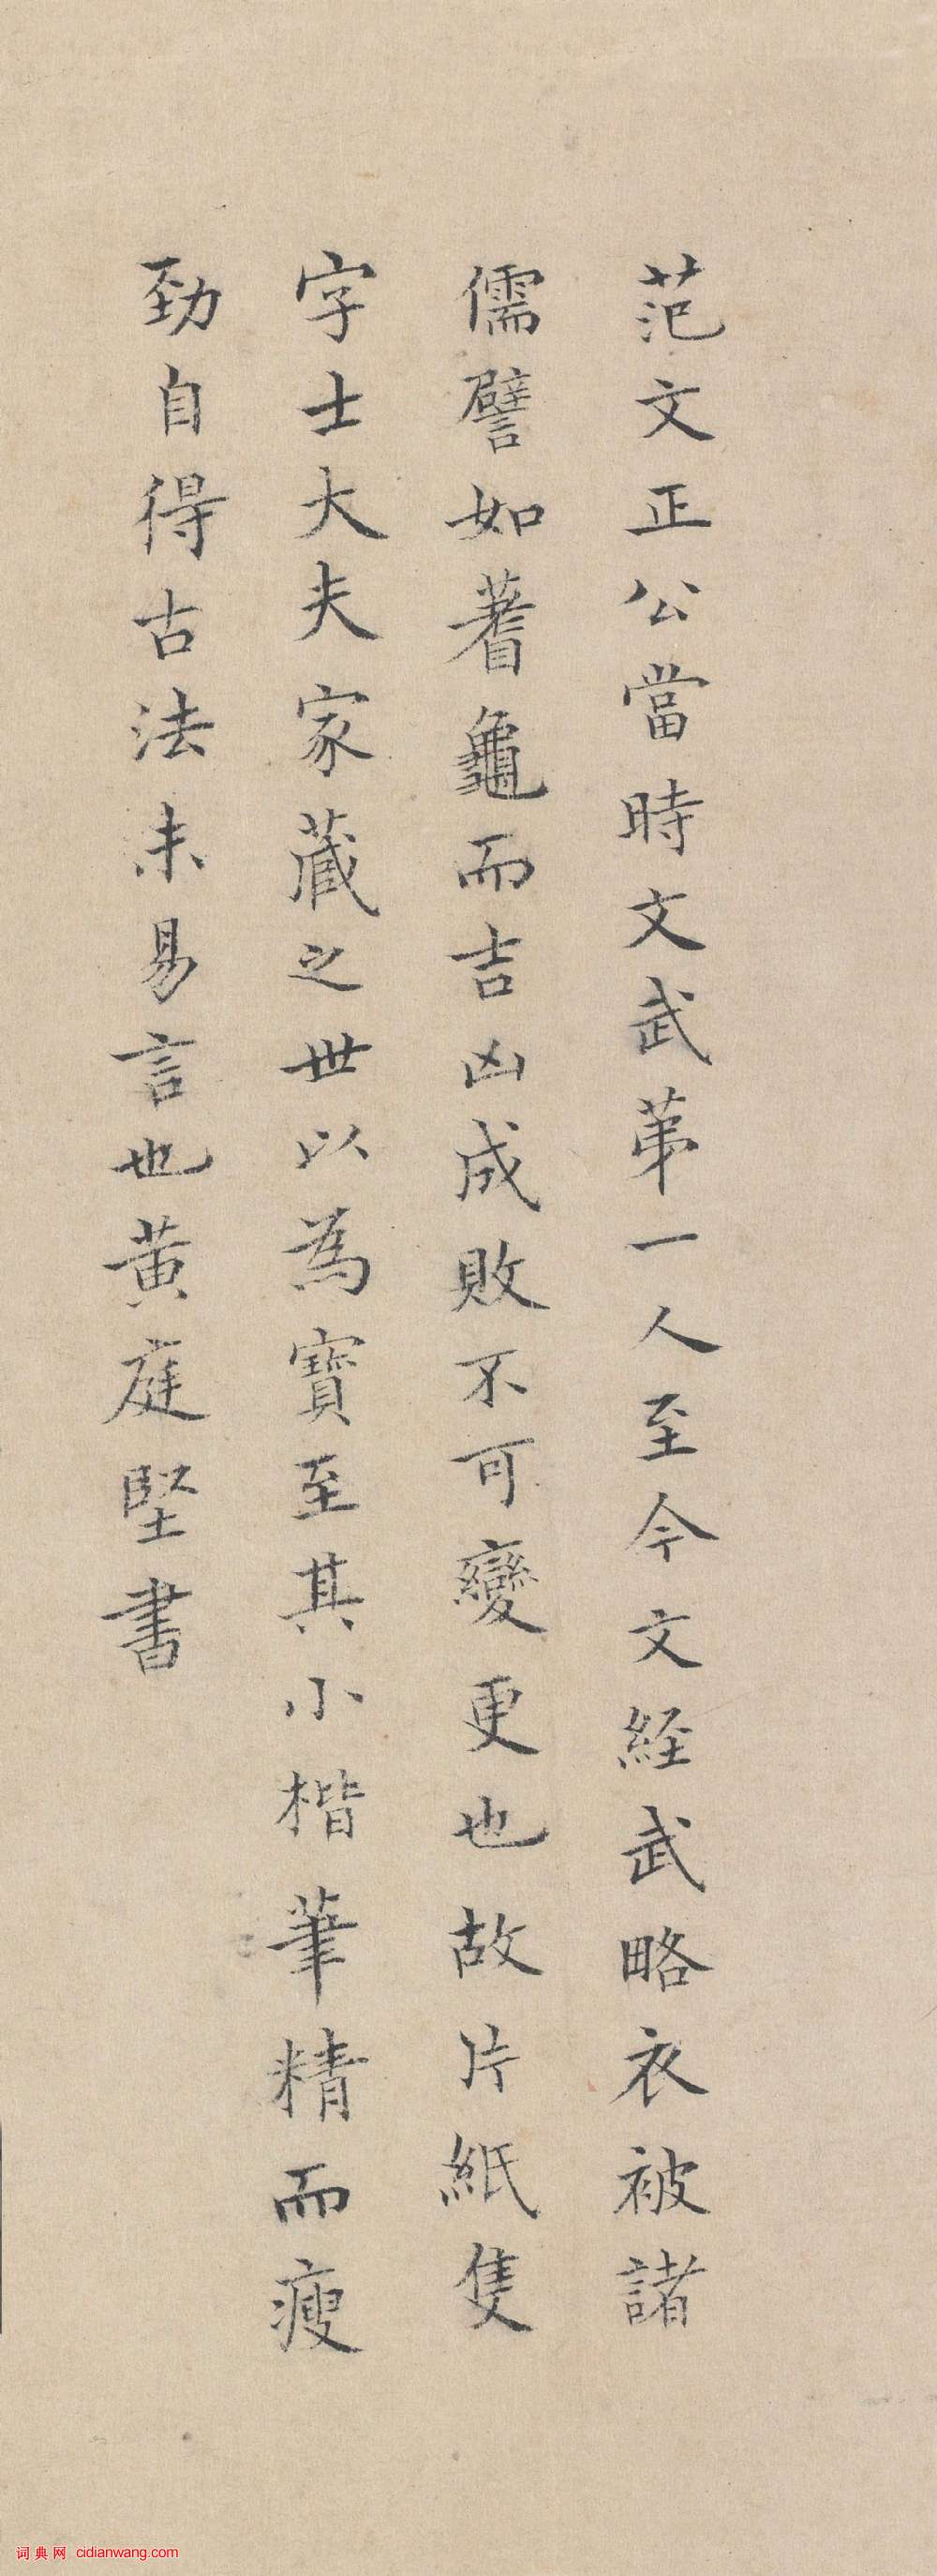 范文正公當時文武苐一人至今文経武略衣被諸
儒譬如蓍龜而吉凶成敗不可變更也故片紙隻
字士大夫家藏之世以為寶至其小楷筆精而瘦
勁自得古法未易言也黄庭堅書
词典网 cidianwang.com